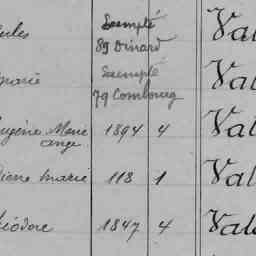 Exempté Val
89 Dinard
Marie Exempté Val
79 Combourg
Eugène Marie 1894 4 Val
ange
Pierre Marie 118 1 Val
Théodore 1847 4 Val